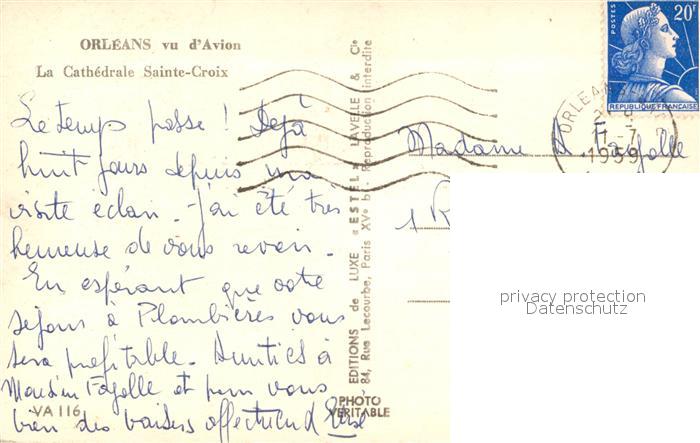 ORLÉANS vu d'Avion
La Cathédrale Sainte-Croix
Le temps passe ! Déjà
huit jours depuis ma
visite éclair. J'ai été très
heureuse de vous revoir.
En espérant que votre
séjour à Plombières vous
sera profitable. Amitiés à
Monsieur Fayolle et pour vous
bien des baisers affectueux
VA 116
EDITIONS de LUXE « ESTEL » LAVELLE & Cie
84, Rue Lecourbe, Paris XVe b. - Reproduction interdite
PHOTO
VÉRITABLE
POSTES
20F
REPUBLIQUE FRANÇAISE
ORLEAN
-7
1959
Madame Fayolle
1 R
privacy protection
Datenschutz